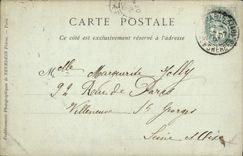 CARTE POSTALE
Ce côté est exclusivement réservé à l'adresse
Melle Marguerite Jolly
92 Rue de Paris
Villeneuve St Georges
Seine et Oise
Etablissements Photographiques de NEURDEIN Frères. - Paris